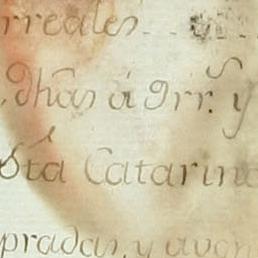 rreales
dhas á Drr. y
Sta Catarina
pradas, y avon